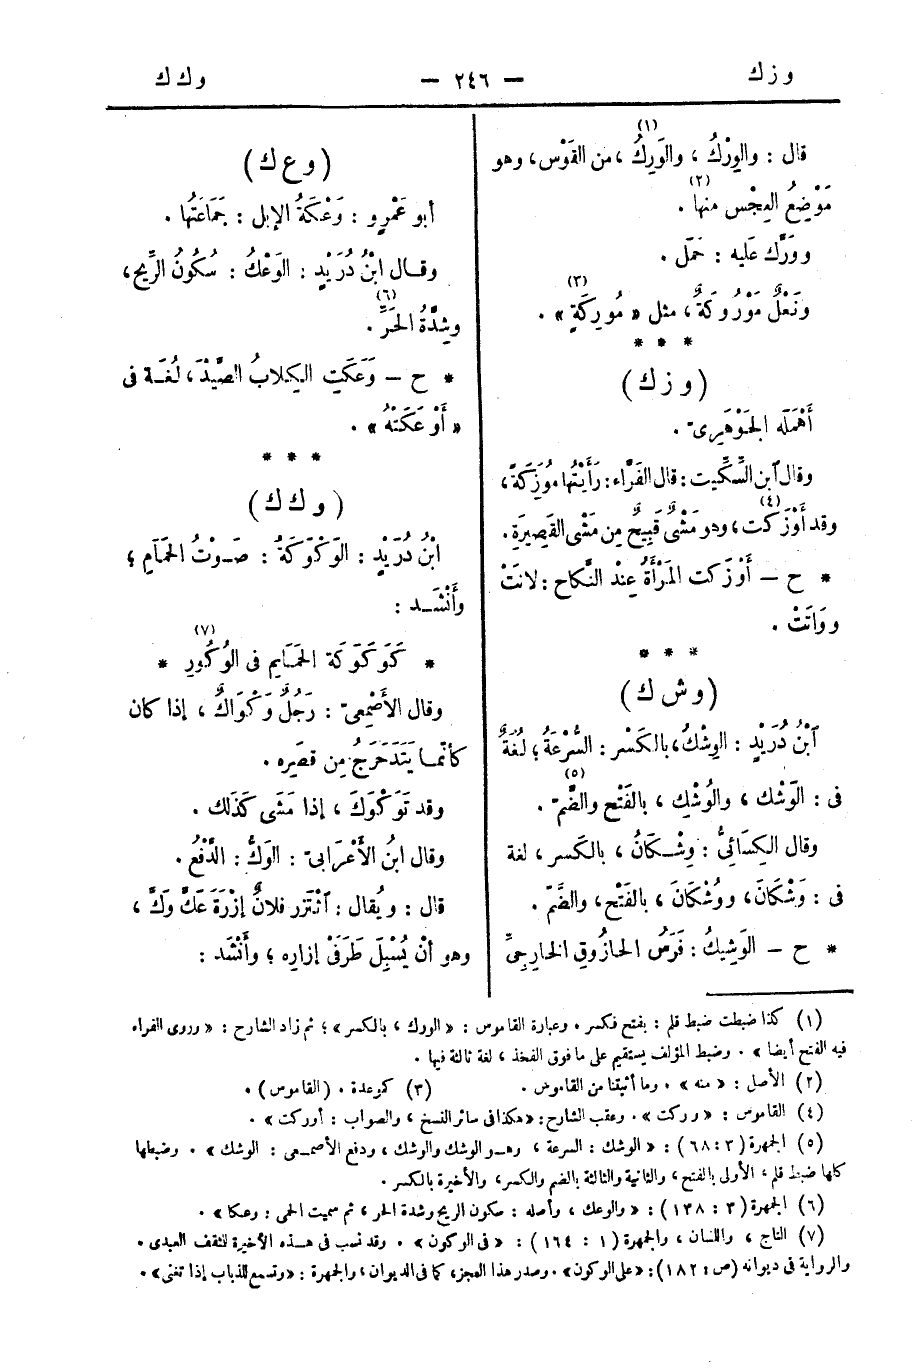 وزك — ٢٤٦ — وكك
قال : والوِرْكُ ، والوَرِكُ (١) ، من القَوْس ، وهو
مَوْضِعُ العِجْس منها (٢) .
ووَرَّك عليه : حَمَل .
ونَعْلٌ مَوْرُوكَةٌ ، مثل « مُورِكَةٍ (٣) » .
* * *
( و ز ك )
أَهْمَلَه الجَوْهَرِىّ .
وقال ٱبن السِّكِّيت : قال الفَرَّاء : رَأَيْتُها مُوزِكَةً ،
وقد أَوْزَكت (٤) ، وهو مَشْىٌ قَبِيحٌ مِن مَشْى القَصِيرَةِ .
* ح – أَوْزَكت المَرْأَةُ عِنْد النِّكاح : لانَتْ
ووَاتَتْ .
* * *
( و ش ك )
ٱبْنُ دُرَيْدٍ : الوِشْكُ ، بالكَسْر : السُّرْعَةُ ؛ لُغَةٌ
فى : الوَشْك ، والوُشْكِ ، بالفَتْح والضَّمّ (٥) .
وقال الكِسائِىُّ : وِشْكَانُ ، بالكَسر ، لغة
فى : وَشْكَانَ ، ووُشْكَانَ ، بالفَتْح ، والضَّمّ .
* ح – الوَشِيكُ : فَرَسُ الحازُوقِ الخارِجىِّ
( وع ك )
أبو عَمْرٍو : وَعْكَةُ الإبل : جَمَاعَتُها .
وقال ابْنُ دُرَيْدٍ : الوَعْكُ : سُكُونُ الرِّيحِ ،
وشِدَّةُ الحَرِّ (٦) .
* ح – وَعَكَتِ الكِلابُ الصَّيْدَ ، لُغَة فى
« أَوْعَكَتْهُ » .
* * *
( و ك ك )
ابْنُ دُرَيْدٍ : الوَكْوَكَةُ : صَوْتُ الحَمَامِ ؛
وأَنْشَد :
* كَوَكْوَكَةِ الحَمَايِم فى الوُكُورِ (٧) *
وقال الأَصْمَعىّ : رَجُلٌ وَكْوَاكٌ ، إذا كان
كأنّما يَتَدَحْرَجُ مِن قِصَرِه .
وقد تَوَكْوَكَ ، إذا مَشَى كَذَلك .
وقال ابنُ الأَعْرابىّ : الوَكُّ : الدَّفْعُ .
قال : ويُقال : ٱئْتَزر فلانٌ إزْرَةَ عَكَّ وَكَّ ،
وهو أنْ يُسْبِلَ طَرَفَىْ إزاره ؛ وأَنْشَد :
(١) كذا ضبطت ضبط قلم : بفتح فكسر . وعبارة القاموس : « الورك ، بالكسر » ؛ ثم زاد الشارح : « وروى الفراء
فيه الفتح أيضا » . وضبط المؤلف يستقيم على ما فوق الفخذ ، لغة ثالثة فيها .
(٢) الأصل : « منه » . وما أثبتنا من القاموس . (٣) كموعدة . (القاموس) .
(٤) القاموس : « ووركت » . وعقب الشارح : « هكذا فى سائر النسخ ، والصواب : أوركت » .
(٥) الجمهرة (٣ : ٦٨) : « الوشك : السرعة ، وهو الوشك والوشك ، ودفع الأصمعى : الوشك » . وضبطها
كلها ضبط قلم ، الأولى بالفتح ، والثانية والثالثة بالضم والكسر ، والأخيرة بالكسر .
(٦) الجمهرة (٣ : ١٣٨) : « والوعك ، وأصله : سكون الريح وشدة الحر ، ثم سميت الحمى : وعكا » .
(٧) التاج ، واللسان ، والجمهرة (١ : ١٦٤) : « فى الوكون » . وقد نسب فى هذه الأخيرة للمثقف العبدى .
والرواية فى ديوانه (ص : ١٨٢) : « على الوكون » . وصدر هذا العجز ، كما فى الديوان ، والجمهرة : « وتسمع للذباب إذا تغنى » .